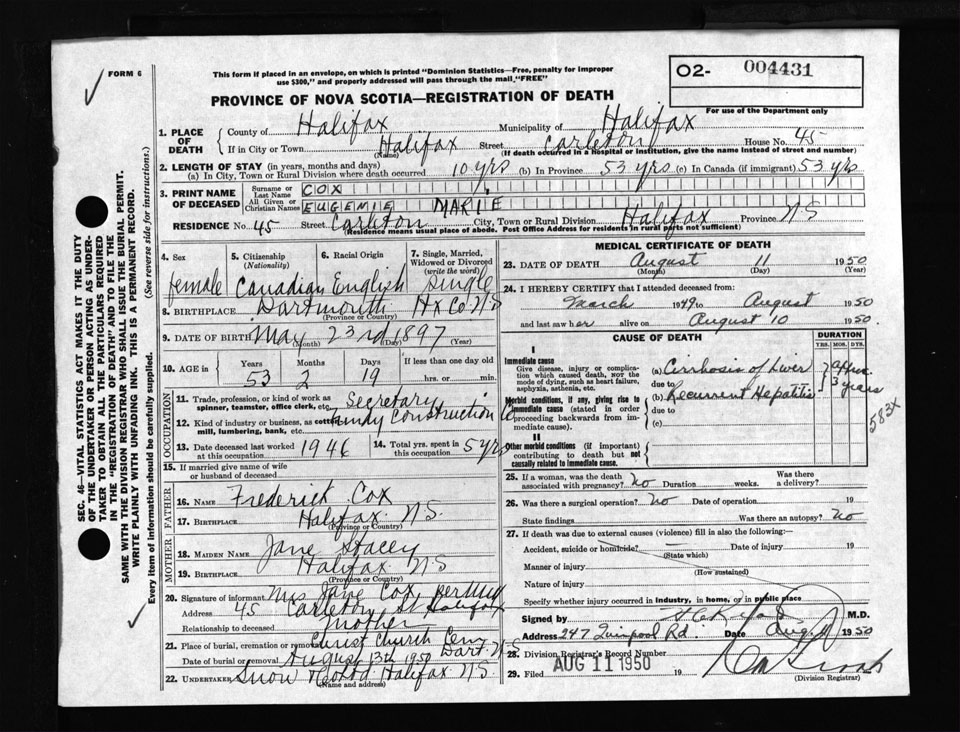 FORM 6
This form if placed in an envelope, on which is printed "Dominion Statistics—Free, penalty for improper
use $300," and properly addressed will pass through the mail, "FREE"
O2- 004431
For use of the Department only
PROVINCE OF NOVA SCOTIA—REGISTRATION OF DEATH
SEC. 46—VITAL STATISTICS ACT MAKES IT THE DUTY
OF THE UNDERTAKER OR PERSON ACTING AS UNDER-
TAKER TO OBTAIN ALL THE PARTICULARS REQUIRED
IN THE "REGISTRATION OF DEATH" AND TO FILE THE
SAME WITH THE DIVISION REGISTRAR WHO SHALL ISSUE THE BURIAL PERMIT.
WRITE PLAINLY WITH UNFADING INK. THIS IS A PERMANENT RECORD.
Every item of information should be carefully supplied. (See reverse side for instructions.)
1. PLACE OF DEATH
County of Halifax Municipality of Halifax
If in City or Town Halifax Street Carleton House No. 45
(Name) (If death occurred in a hospital or institution, give the name instead of street and number)
2. LENGTH OF STAY (in years, months and days)
(a) In City, Town or Rural Division where death occurred 10 yrs (b) In Province 53 yrs (c) In Canada (if immigrant) 53 yrs
3. PRINT NAME OF DECEASED
Surname or Last Name COX
All Given or Christian Names EUGEMIE MARIE
RESIDENCE No. 45 Street Carleton City, Town or Rural Division Halifax Province N S
(Residence means usual place of abode. Post Office Address for residents in rural parts not sufficient)
4. Sex 5. Citizenship (Nationality) 6. Racial Origin 7. Single, Married, Widowed or Divorced (write the word)
female Canadian English Single
8. BIRTHPLACE Dartmouth Hx Co. N S
(Province or Country)
9. DATE OF BIRTH May 23rd 1897
(Month) (Day) (Year)
10. AGE in Years Months Days If less than one day old
53 2 19 hrs. or min.
OCCUPATION
11. Trade, profession, or kind of work as spinner, teamster, office clerk, etc. Secretary
12. Kind of industry or business, as cotton mill, lumbering, bank, etc. Construction Co
13. Date deceased last worked at this occupation 1946 14. Total yrs. spent in this occupation 5 yrs
15. If married give name of wife or husband of deceased
FATHER
16. NAME Frederick Cox
17. BIRTHPLACE Halifax N S.
(Province or Country)
MOTHER
18. MAIDEN NAME Jane Stacey
19. BIRTHPLACE Halifax N S
(Province or Country)
20. Signature of informant Mrs Jane Cox
Address 45 Carleton St Halifax
Relationship to deceased mother
21. Place of burial, cremation or removal Christ Church Cem Dart. N S
Date of burial or removal August 13th 1950
22. UNDERTAKER Snow & Co Ltd Halifax N S.
(Name and address)
MEDICAL CERTIFICATE OF DEATH
23. DATE OF DEATH August 11 1950
(Month) (Day) (Year)
24. I HEREBY CERTIFY that I attended deceased from:
March 1949 to August 1950
and last saw her alive on August 10 1950.
CAUSE OF DEATH DURATION
YRS. MOS. DYS.
I
Immediate cause
Give disease, injury or complication which caused death, NOT the mode of dying, such as heart failure, asphyxia, asthenia, etc.
(a) Cirrhosis of Liver
due to
Morbid conditions, if any, giving rise to immediate cause (stated in order proceeding backwards from immediate cause).
(b) Recurrent Hepatitis
due to
(c)
3 years
583x
II
Other morbid conditions (if important) contributing to death but not causally related to immediate cause.
25. If a woman, was the death associated with pregnancy? no Duration weeks. Was there a delivery?
26. Was there a surgical operation? no Date of operation 19
State findings Was there an autopsy? no
27. If death was due to external causes (violence) fill in also the following:—
Accident, suicide or homicide? — Date of injury 19
(State which)
Manner of injury
(How sustained)
Nature of injury
Specify whether injury occurred in industry, in home, or in public place
Signed by M.D.
Address 247 Quinpool Rd. Date Aug. 1950
28. Division Registrar's Record Number
29. Filed AUG 11 1950 19
(Division Registrar)